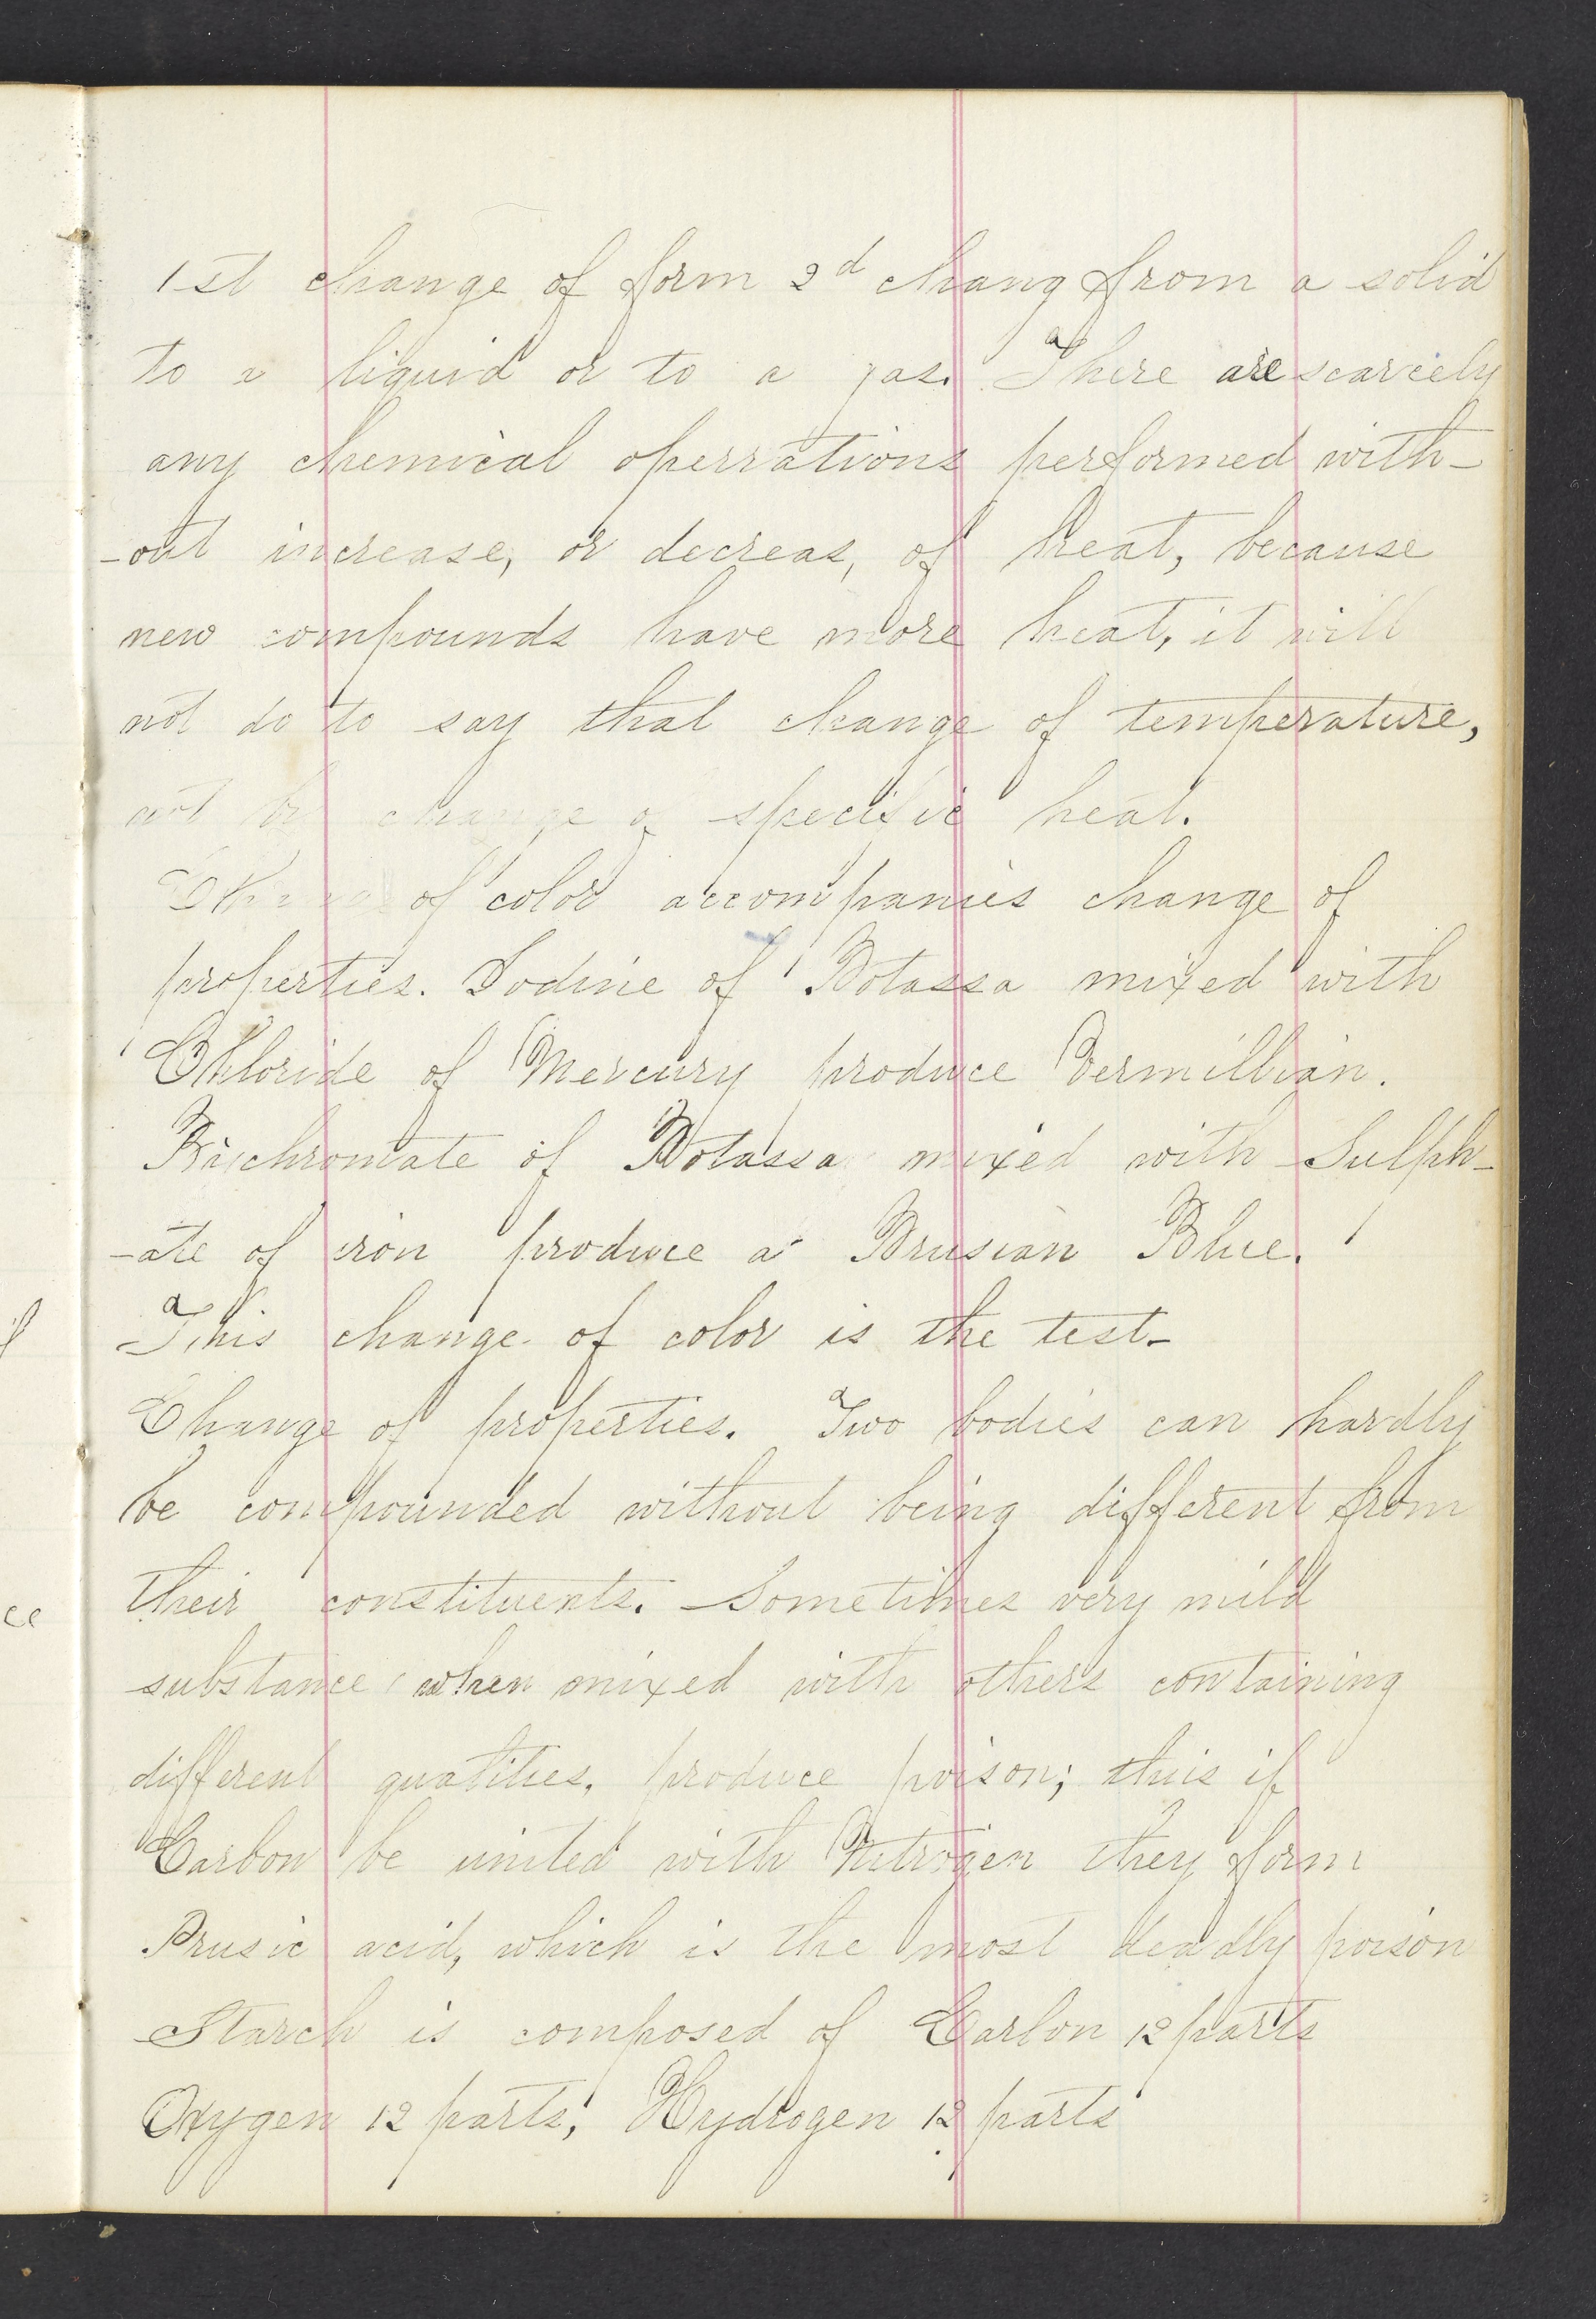 1st change of form 2d chang from a solid
to a liquid or to a gas. There are scarcely
any chemical operrations performed with-
-out increase, or decreas, of heat, because
new compounds have more heat, it will
not do to say that change of temperature,
not by change of specific heat.
Change of color accompanies change of
properties. Iodine of Potassa mixed with
Chloride of Mercury produce Vermillian.
Bichromate of Potassa mixed with Sulph-
-ate of iron produce a Prusian Blue.
This change of color is the test-
Change of properties. Two bodies can hardly
be compounded without being different from
their constituents. Sometimes very mild
substance when mixed with others containing
different qualities, produce poison; this if
Carbon be united with Nitrogen they form
Prusic acid, which is the most deadly poison
Starch is composed of Carbon 12 parts
Oxygen 12 parts, Hydrogen 12 parts
il
ce